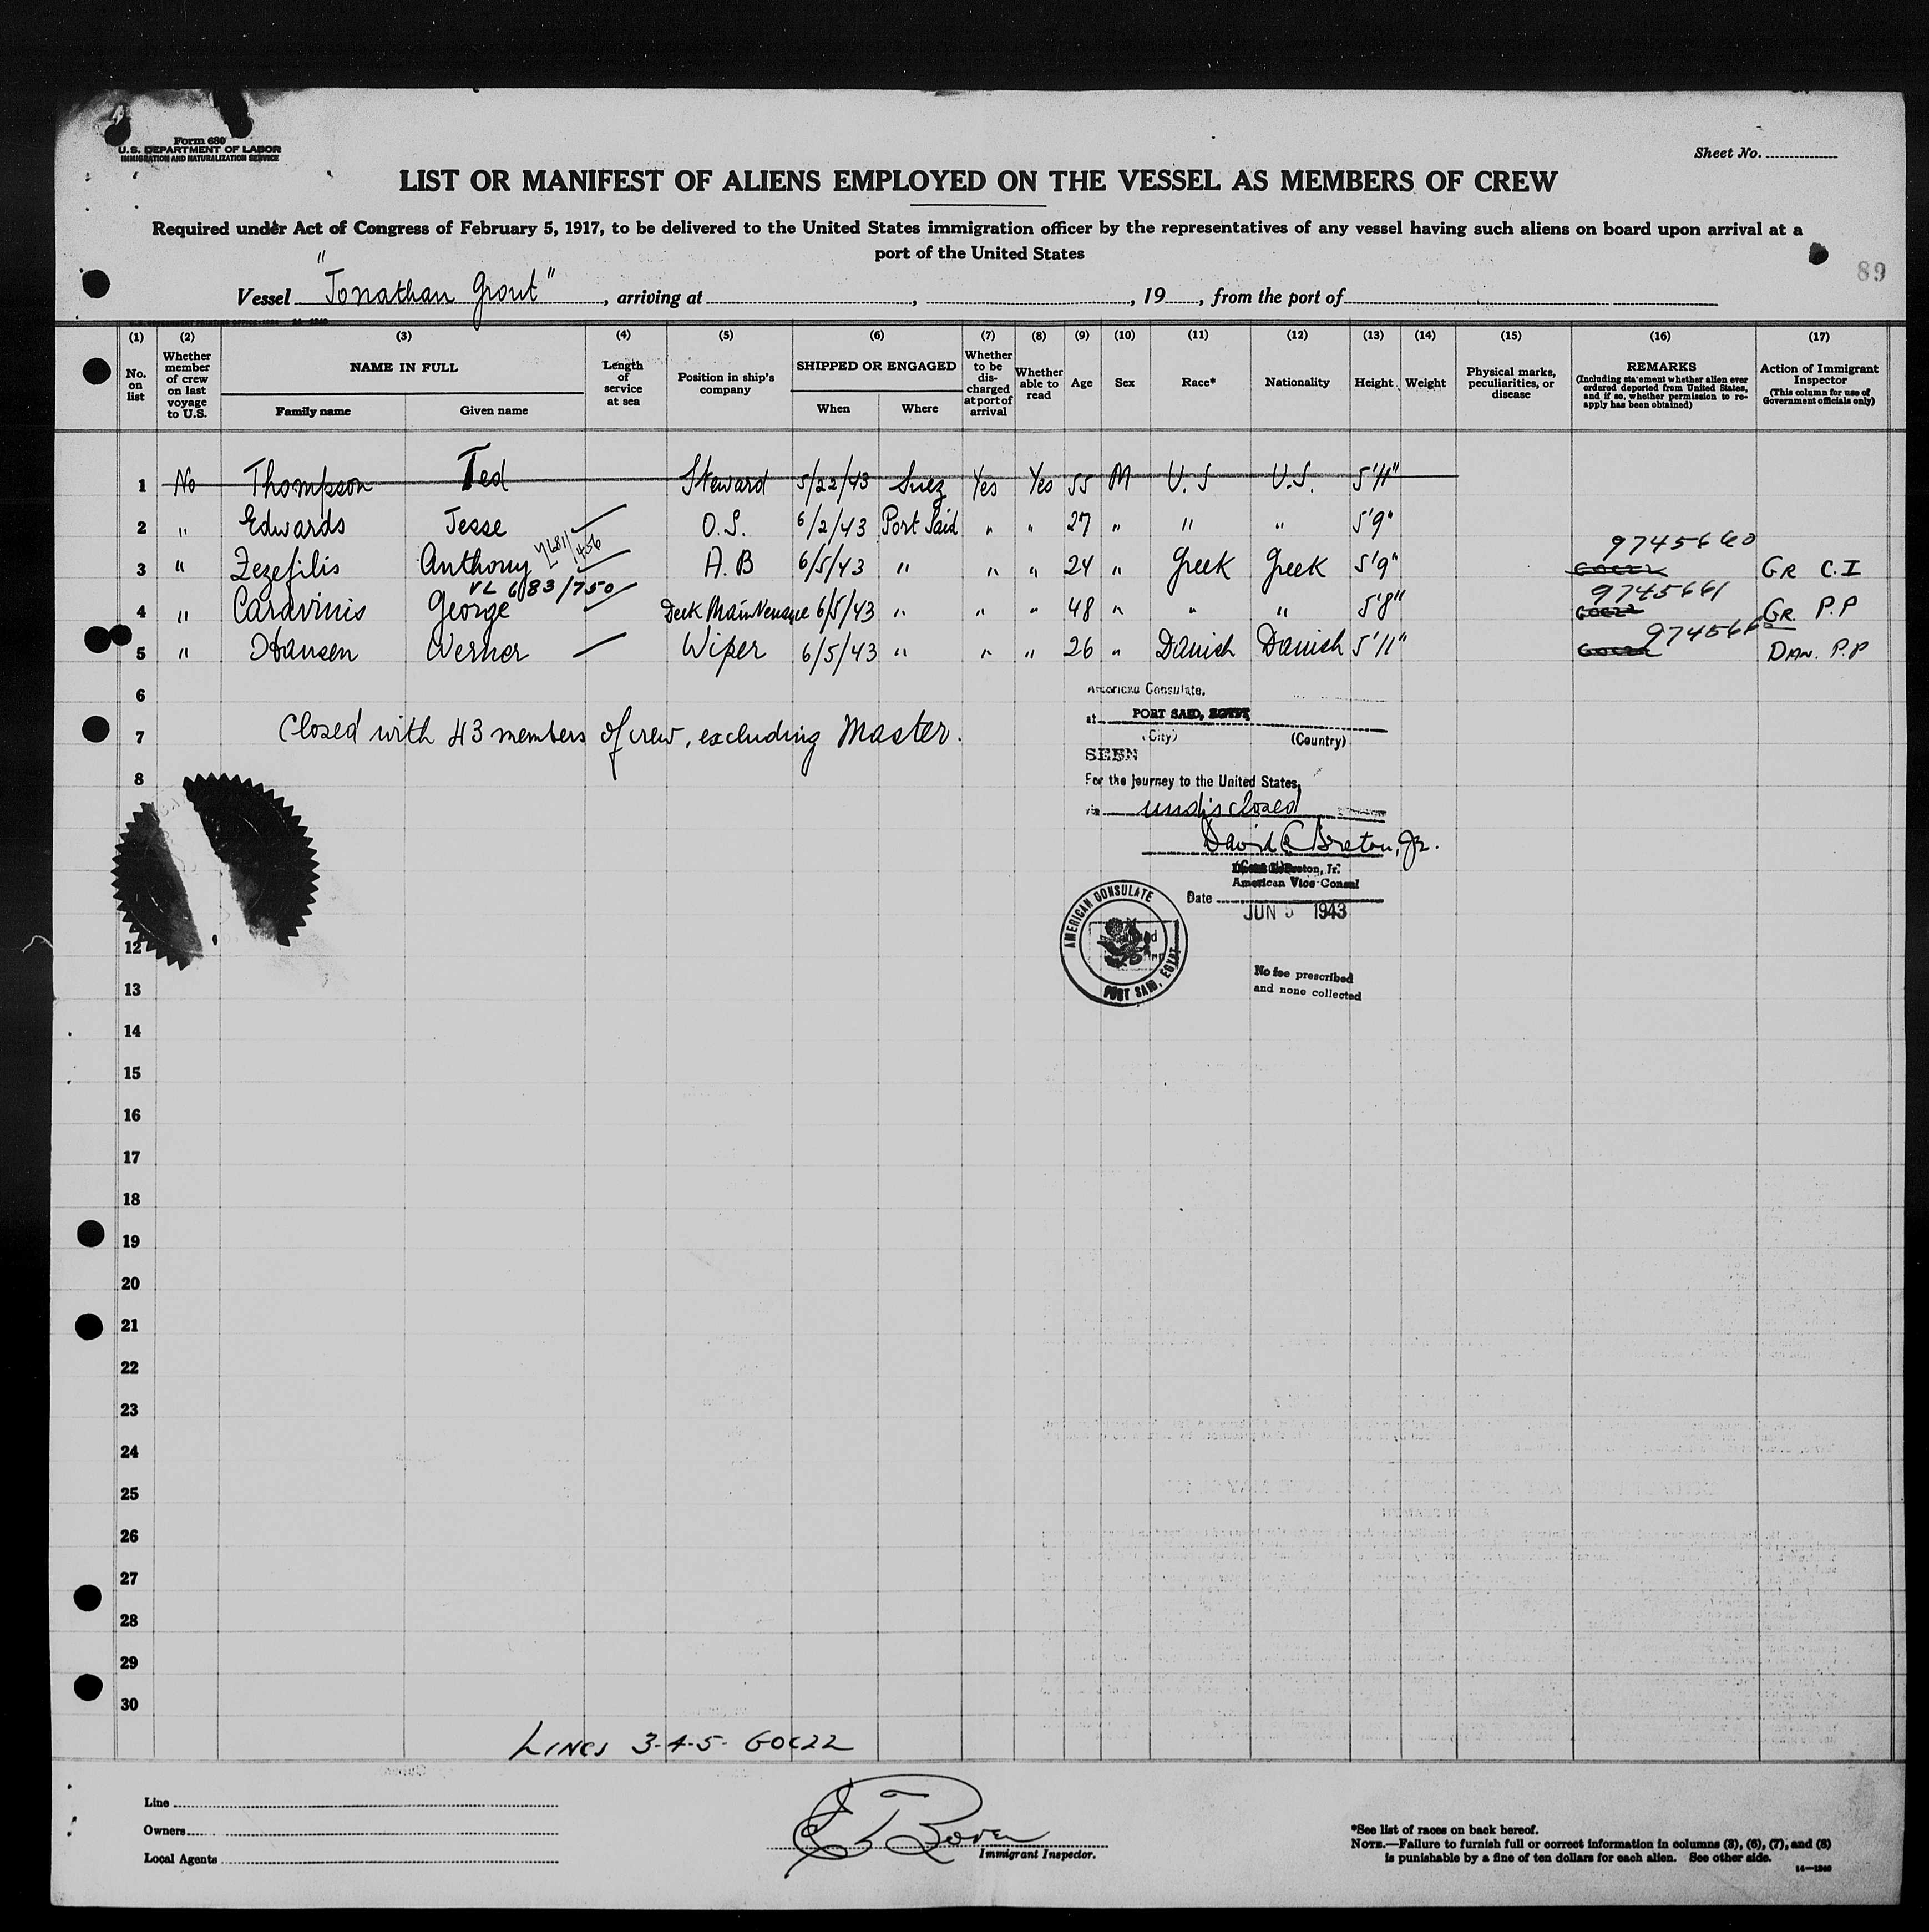 Form 680
U.S. DEPARTMENT OF LABOR
IMMIGRATION AND NATURALIZATION SERVICE
Sheet No.
LIST OR MANIFEST OF ALIENS EMPLOYED ON THE VESSEL AS MEMBERS OF CREW
Required under Act of Congress of February 5, 1917, to be delivered to the United States immigration officer by the representatives of any vessel having such aliens on board upon arrival at a
port of the United States
89
Vessel "Jonathan Grout", arriving at , , 19 , from the port of
(1) (2) (3) (4) (5) (6) (7) (8) (9) (10) (11) (12) (13) (14) (15) (16) (17)
No. on list
Whether member of crew on last voyage to U.S.
NAME IN FULL
Family name Given name
Length of service at sea
Position in ship's company
SHIPPED OR ENGAGED
When Where
Whether to be discharged at port of arrival
Whether able to read
Age Sex Race* Nationality Height Weight
Physical marks, peculiarities, or disease
REMARKS
(Including statement whether alien ever ordered deported from United States, and if so, whether permission to re-apply has been obtained)
Action of Immigrant Inspector
(This column for use of Government officials only)
1 No Thompson Ted Steward 5/22/43 Suez Yes Yes 55 M U.S U.S. 5'11"
2 " Edwards Jesse O.S. 6/2/43 Port Said " " 27 " " " 5'9"
3 " Zezefilis Anthony A.B 6/5/43 " " " 24 " Greek Greek 5'9" 9745660 GR C.I
VL 683/750
4 " Caravinis George Deck Maintenance 6/5/43 " " " 48 " " " 5'8" 9745661 GR. P.P
5 " Hansen Werner Wiper 6/5/43 " " " 26 " Danish Danish 5'11" 974566 DAN. P.P
6
7 Closed with 43 members of crew, excluding Master.
8
American Consulate,
at PORT SAID, EGYPT
(City) (Country)
SEEN
For the journey to the United States,
via undisclosed
David C Breton, Jr.
Breton, Jr.
American Vice Consul
Date JUN 5 1943
AMERICAN CONSULATE
PORT SAID, EGYPT
No fee prescribed
and none collected
12
13
14
15
16
17
18
19
20
21
22
23
24
25
26
27
28
29
30
LINES 3-4-5- GOC22
Line
Owners
Local Agents
Immigrant Inspector.
*See list of races on back hereof.
NOTE.—Failure to furnish full or correct information in columns (3), (6), (7), and (8)
is punishable by a fine of ten dollars for each alien. See other side.